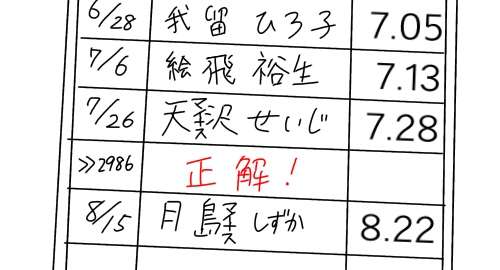 6/28 我留 ひろ子 7.05
7/6 絵飛 裕生 7.13
7/26 天沢 せいじ 7.28
≫2986 正解！
8/15 月島 しずか 8.22